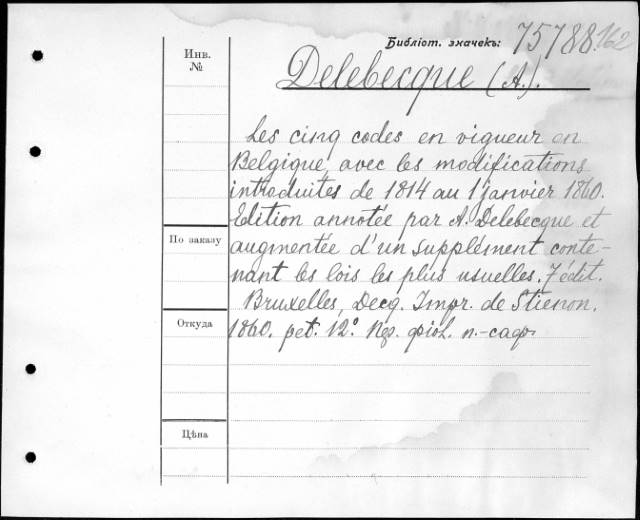 Библіот. значекъ: 75788.162
Инв.
№
Delebecque (A.).
Les cinq codes en vigueur en
Belgique, avec les modifications
introduites de 1814 au 1 janvier 1860.
Edition annotée par A. Delebecque et
По заказу
augmentée d'un supplément conte-
nant les lois les plus usuelles. 7 édit.
Bruxelles, Decq. Impr. de Stienon.
Откуда
1860. pet. 12°. Кр. фіол. п.-саф.
Цѣна